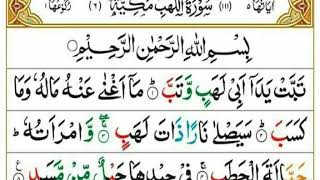 اٰيَاتُهَا ٥ (١١١) سُوْرَةُ اللَّهَبِ مَكِّيَّةٌ (٦) رُكُوْعُهَا ١
بِسْمِ اللّٰهِ الرَّحْمٰنِ الرَّحِيْمِ
تَبَّتْ يَدَاۤ اَبِيْ لَهَبٍ وَّتَبَّ ۝١ مَاۤ اَغْنٰى عَنْهُ مَالُهٗ وَمَا
كَسَبَ ۝٢ سَيَصْلٰى نَارًا ذَاتَ لَهَبٍ ۝٣ وَّامْرَاَتُهٗ
حَمَّالَةَ الْحَطَبِ ۝٤ فِيْ جِيْدِهَا حَبْلٌ مِّنْ مَّسَدٍ ۝٥